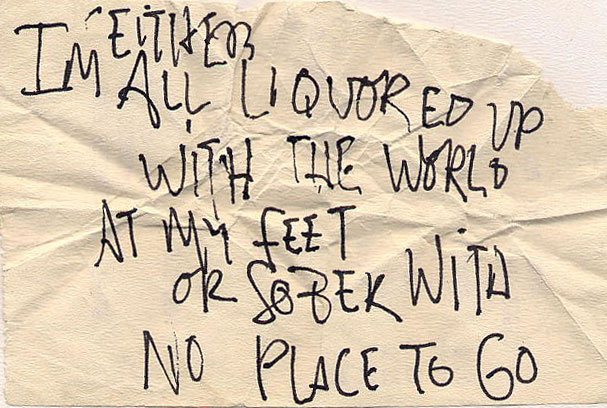 I'M EITHER
ALL LIQUORED UP
WITH THE WORLD
AT MY FEET
OR SOBER WITH
NO PLACE TO GO